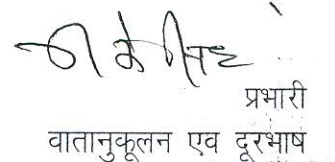 प्रभारी
वातानुकूलन एव दूरभाष